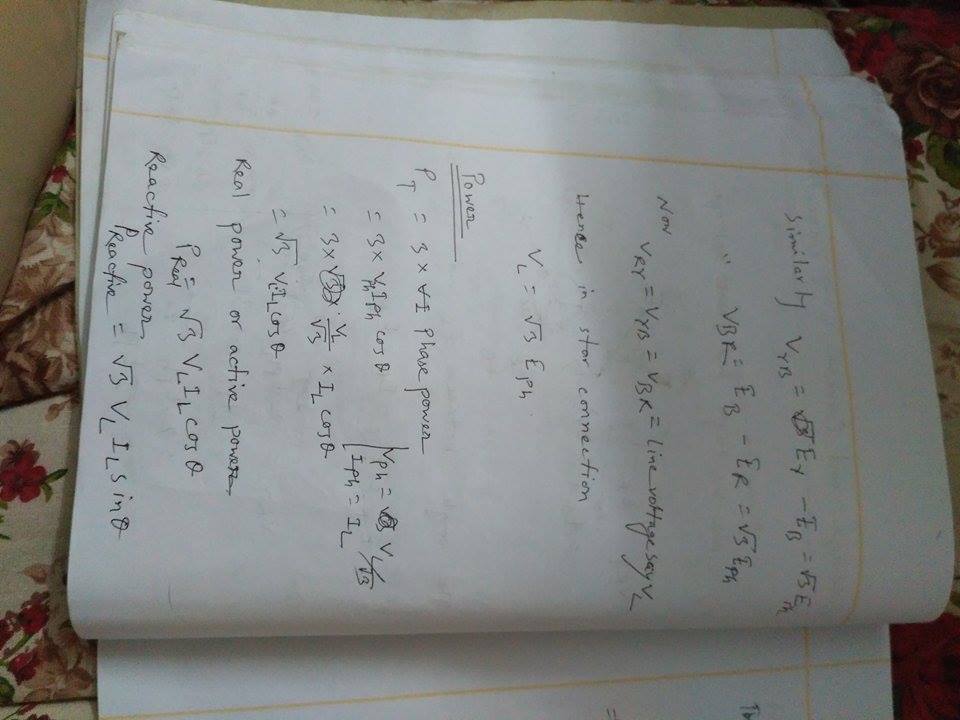 Similarly V_YB = E_Y - E_B = √3 E_Ph
" V_BR = E_B - E_R = √3 E_Ph
Now
V_RY = V_YB = V_BR = line voltage say V_L
Hence in star connection
V_L = √3 E_Ph
Power
P_T = 3 × Phase power
= 3 × V_Ph I_Ph cos θ
V_Ph = V_L/√3
I_Ph = I_L
= 3 × V_L/√3 × I_L cos θ
= √3 V_L I_L cos θ
Real power or active power
P_Real = √3 V_L I_L cos θ
Reactive power
P_Reactive = √3 V_L I_L sin θ